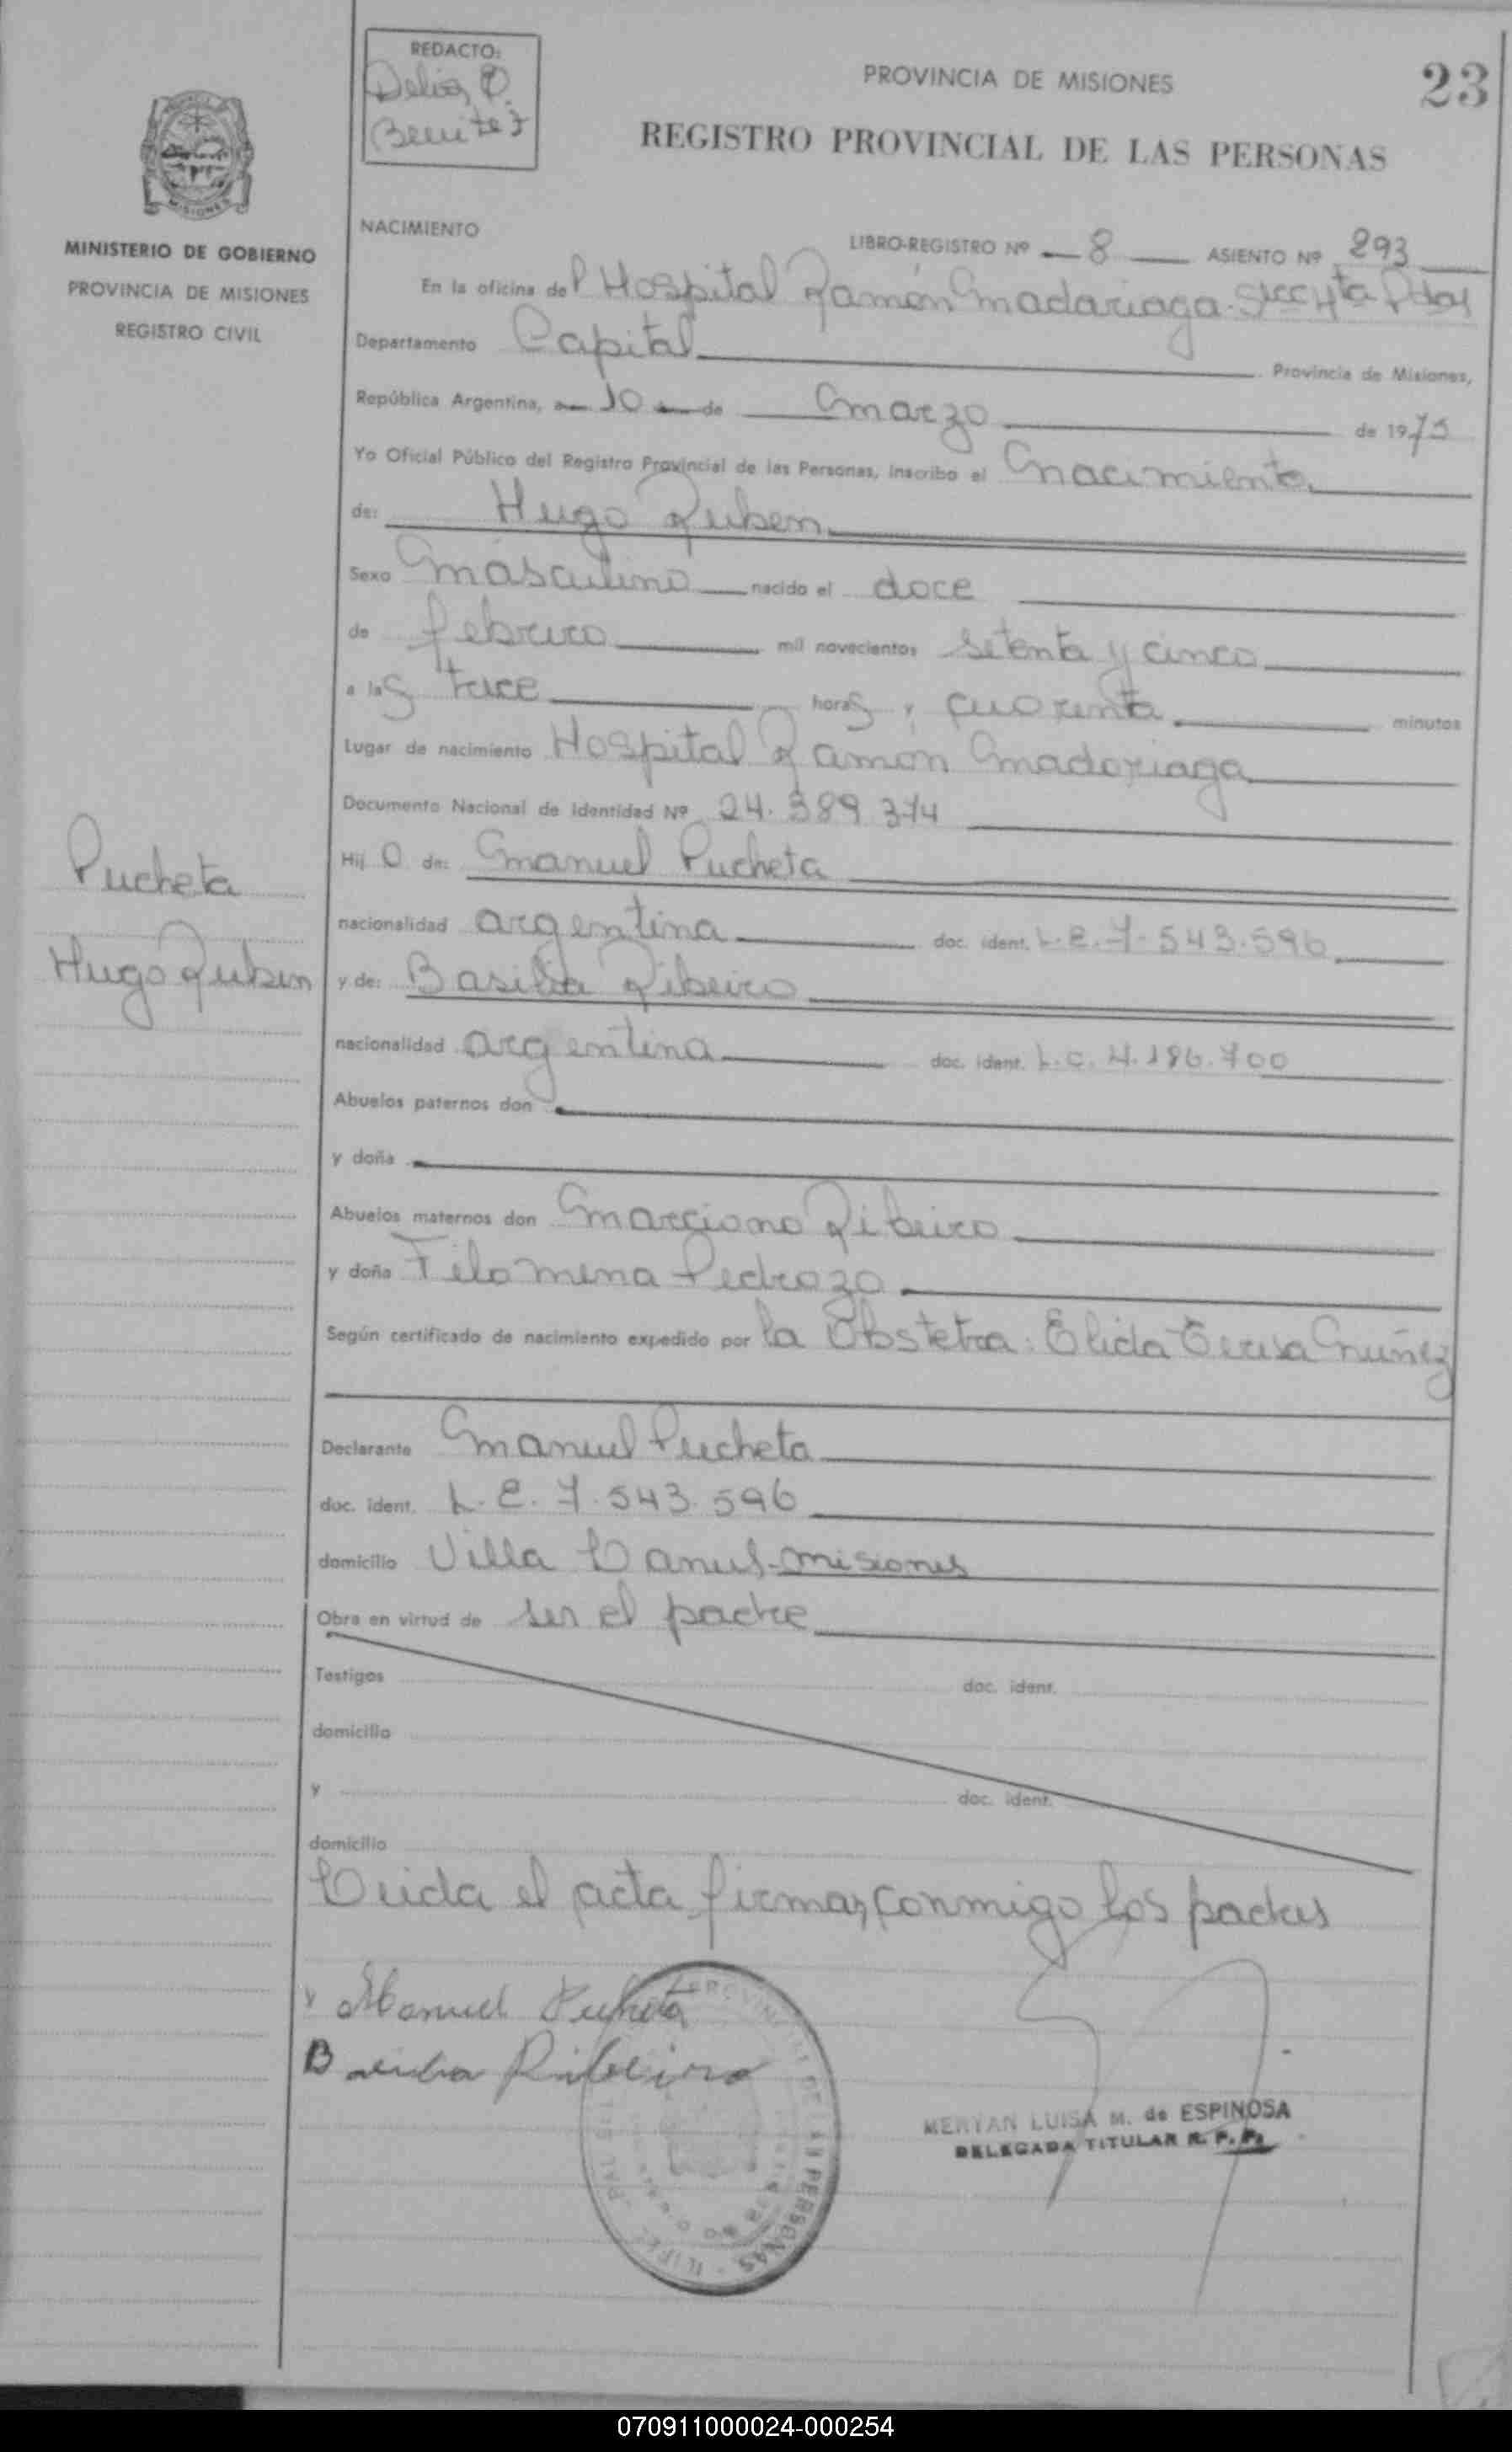 REDACTO:
Delia, O.
Benitez
PROVINCIA DE MISIONES
23
REGISTRO PROVINCIAL DE LAS PERSONAS
MISIONES
MINISTERIO DE GOBIERNO
PROVINCIA DE MISIONES
REGISTRO CIVIL
NACIMIENTO
LIBRO-REGISTRO Nº 8 ASIENTO Nº 293
En la oficina del Hospital Ramón Madariaga. Secc 4ta Pdas
Departamento Capital Provincia de Misiones,
República Argentina, a 10 de Marzo de 1975
Yo Oficial Público del Registro Provincial de las Personas, inscribo el Nacimiento
de: Hugo Ruben
Sexo Masculino nacido el doce
de febrero mil novecientos setenta y cinco
a las trece horas y cuarenta minutos
Lugar de nacimiento Hospital Ramón Madariaga
Documento Nacional de Identidad Nº 24.389.374
Hijo de: Manuel Pucheta
Pucheta
nacionalidad argentina doc. ident. L.E. 7.543.596
Hugo Ruben
y de: Basilia Ribeiro
nacionalidad argentina doc. ident. L.C. 4.186.700
Abuelos paternos don
y doña
Abuelos maternos don Marciano Ribeiro
y doña Filomena Pedrozo
Según certificado de nacimiento expedido por la Obstetra: Elida Teresa Nuñez
Declarante Manuel Pucheta
doc. ident. L.E. 7.543.596
domicilio Villa Lanus-Misiones
Obra en virtud de ser el padre
Testigos doc. ident.
domicilio
y doc. ident.
domicilio
Leida el acta, firman conmigo los padres
Manuel Pucheta
Ribeiro
MERYAN LUISA M. de ESPINOSA
DELEGADA TITULAR R. P. P.
070911000024-000254